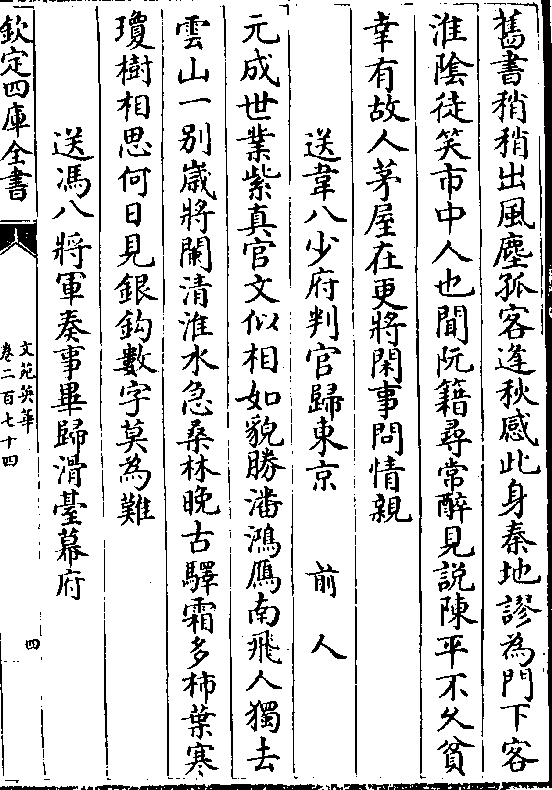 舊書稍稍出風塵孤客逢秋感此身秦地謬為門下客
淮陰徒笑市中人也聞阮籍尋常醉見說陳平不久貧
幸有故人茅屋在更將閑事問情親
送韋八少府判官歸東京　前人
元成世業紫真官文似相如貌勝潘鴻鴈南飛人獨去
雲山一別歲將闌清淮水急桑林晚古驛霜多柿葉寒
瓊樹相思何日見銀鈎數字莫為難
送馮八將軍奏事畢歸滑臺幕府
欽定四庫全書
文苑英華
卷二百七十四
四